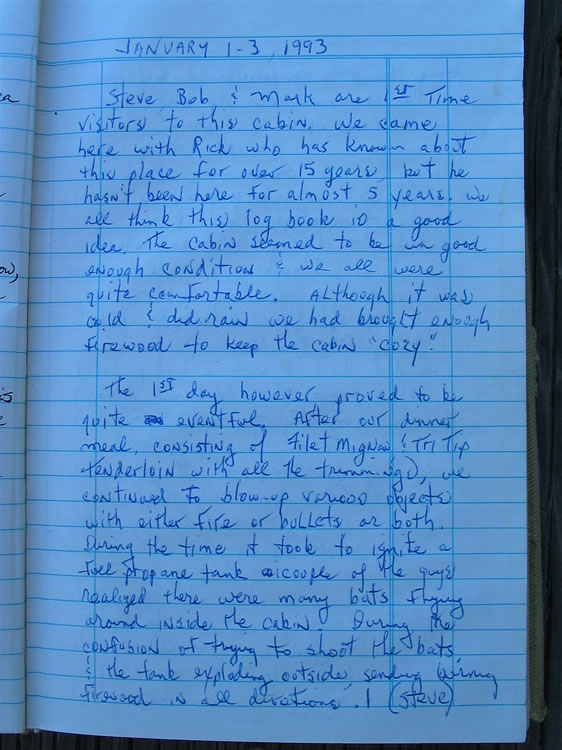 JANUARY 1-3, 1993
Steve Bob & Mark are 1ST Time
visitors to this cabin. We came
here with Rick who has known about
this place for over 15 years, but he
hasn't been here for almost 5 years. We
all think this log book is a good
idea. The cabin seemed to be in good
enough condition & we all were
quite comfortable. Although it was
cold & did rain we had brought enough
firewood to keep the cabin "cozy".
The 1ST day however proved to be
quite eventful. After our dinner
meal, consisting of Filet Mignon & Tri Tip
tenderloin with all the trimmings, we
continued to blow-up various objects
with either fire or bullets or both.
During the time it took to ignite a
full propane tank a couple of the guys
realized there were many bats flying
around inside the cabin. During the
confusion of trying to shoot the bats
& the tank exploding outside, sending burning
firewood in all directions.! (Steve)